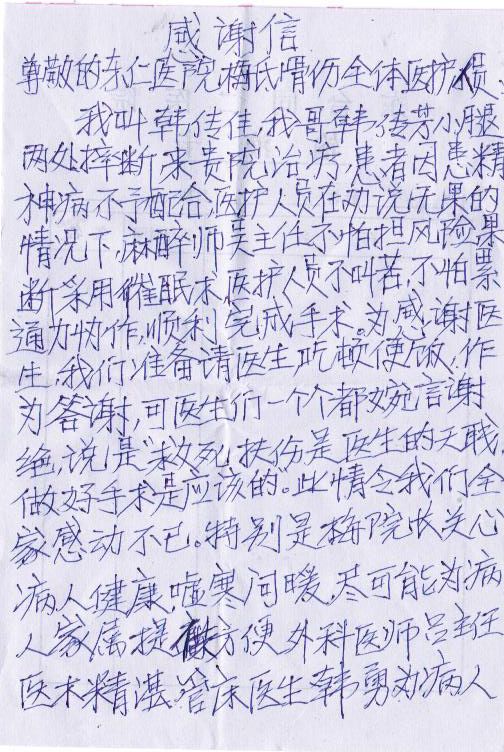 感谢信
尊敬的东仁医院梅氏骨伤全体医护人员:
我叫韩传佳,我哥韩传芳小腿
两处摔断来贵院治疗,患者因患精
神病不予配合,医护人员在劝说无果的
情况下,麻醉师吴主任不怕担风险果
断采用催眠术,医护人员不叫苦,不怕累
通力协作,顺利完成手术。为感谢医
生,我们准备请医生吃顿便饭,作
为答谢,可医生们一个个都婉言谢
绝,说是救死扶伤是医生的天职,
做好手术是应该的。此情令我们全
家感动不已。特别是梅院长关心
病人健康,嘘寒问暖,尽可能为病
人家属提供方便外科医师吕主任
医术精湛。管床医生韩勇为病人